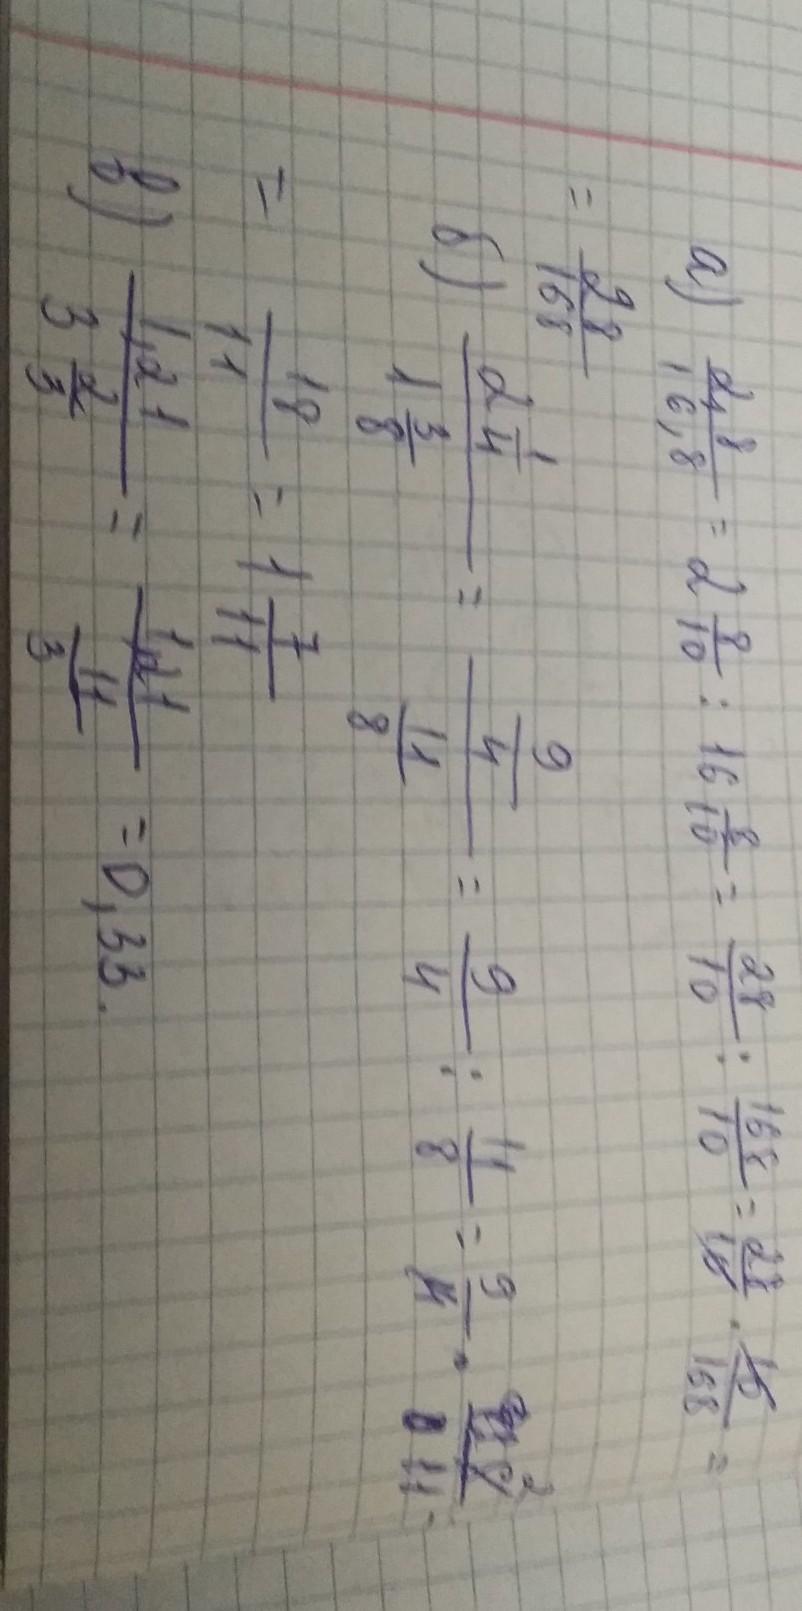 а) 2,8/16,8 = 2 8/10 : 16 8/10 = 28/10 : 168/10 = 28/10 · 10/168 =
= 28/168
б) (2 1/4)/(1 3/8) = (9/4)/(11/8) = 9/4 : 11/8 = 9/4 · 8 2/11 =
= 18/11 = 1 7/11
в) 1,21/(3 2/3) = 1,21/(11/3) = 0,33.